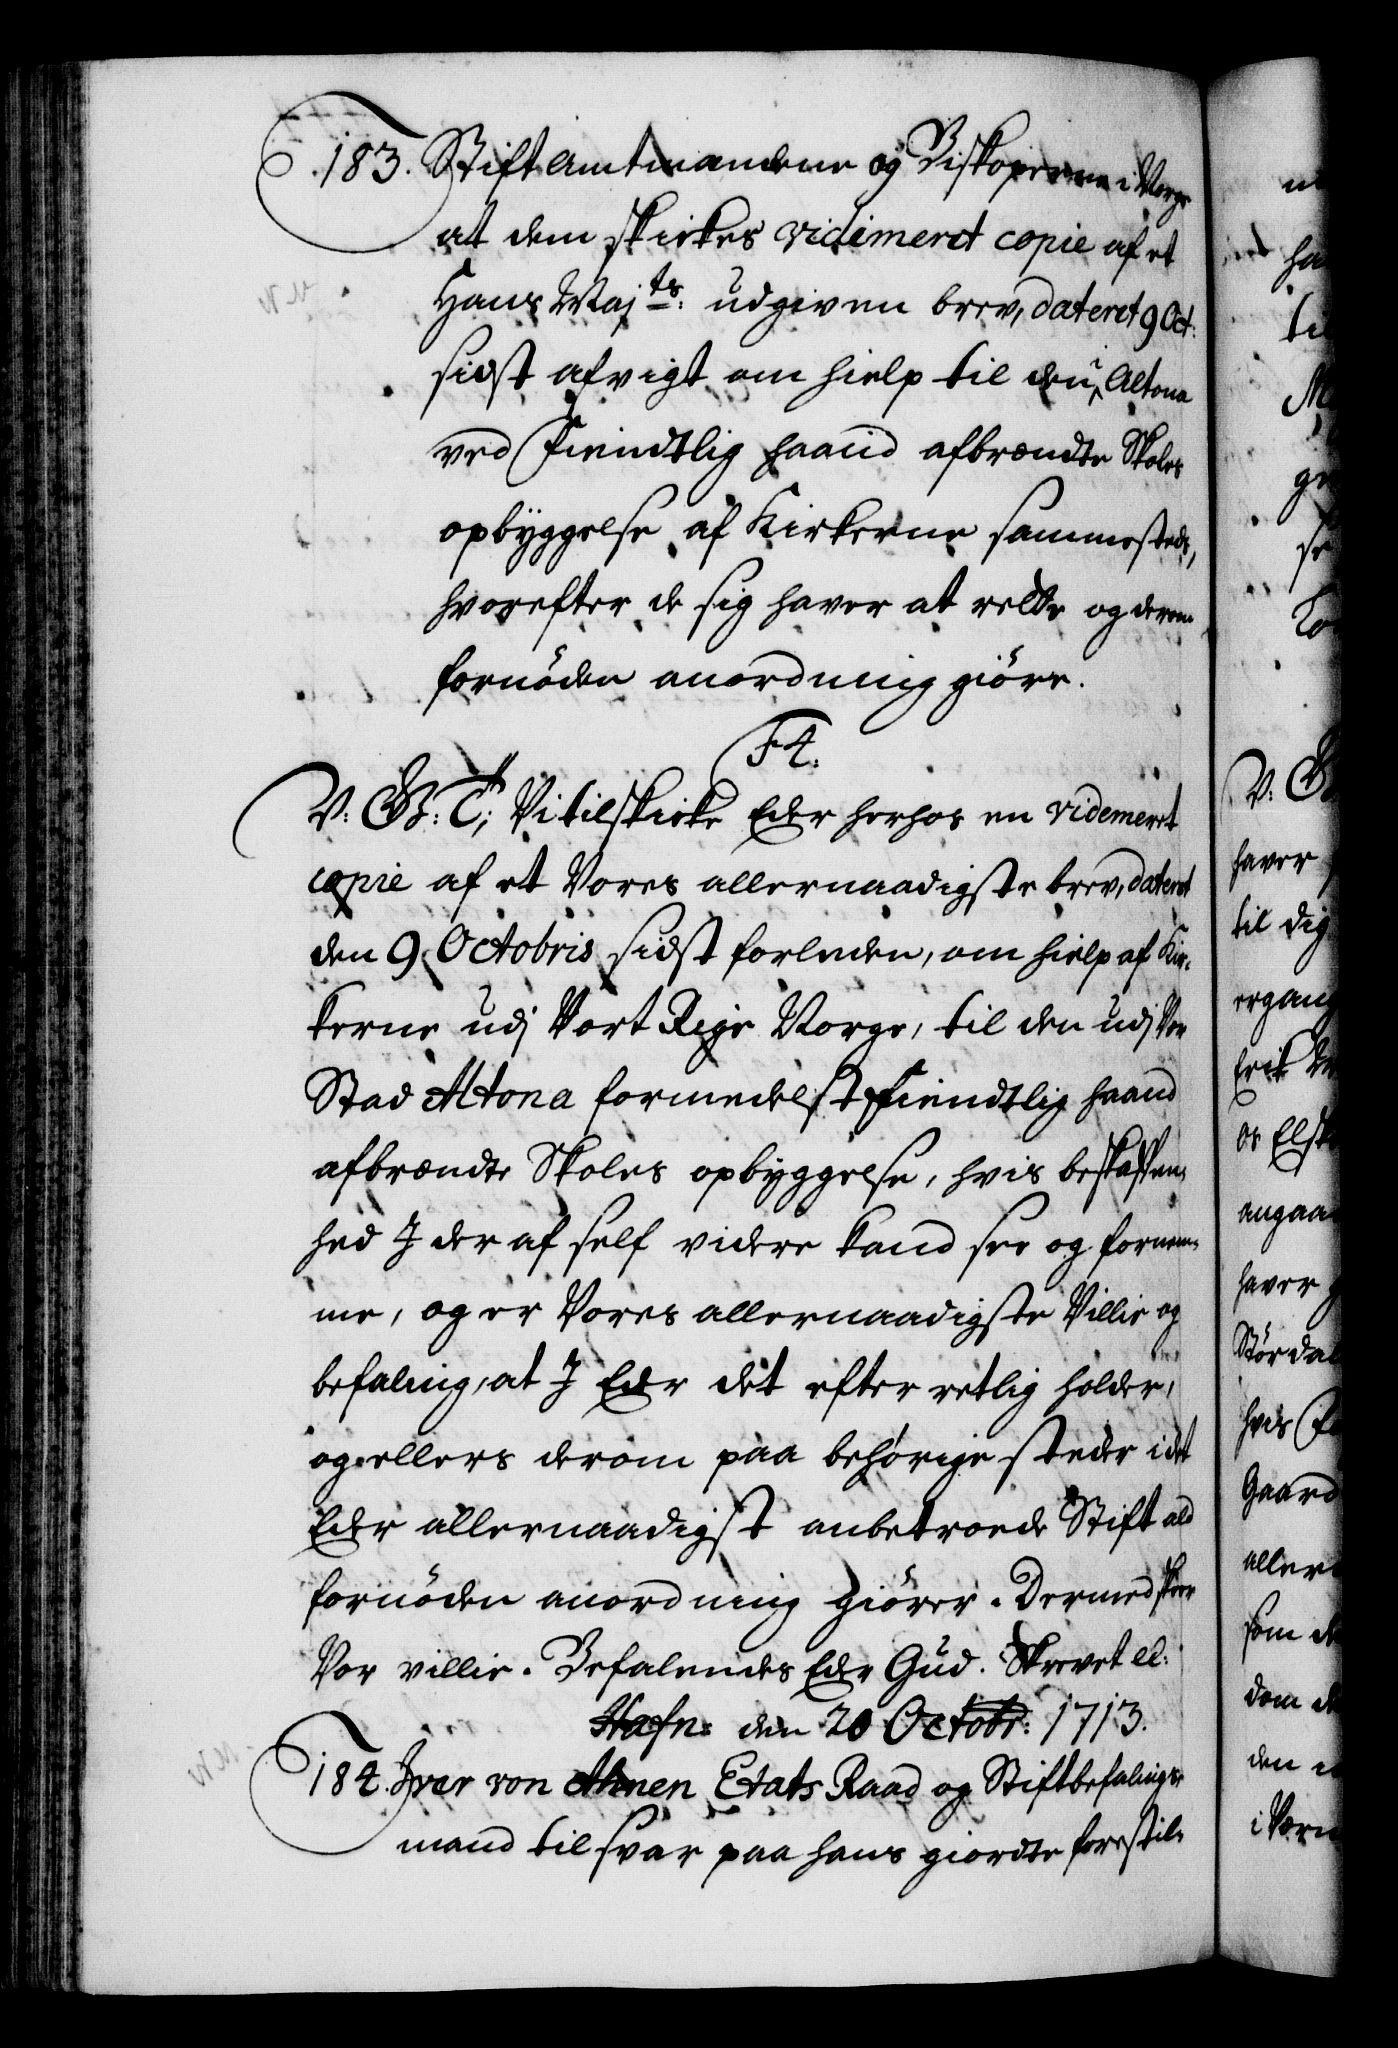 183. Stift Amtmandene og Biskoperne i Norge
at dem skickes vidimeret copie af et
Hans Maj:ts udgiven brev, dateret 9 Oct:
sidst afvigt om hielp til den i Altona
ved Fiendtlig haand afbrændte Skoles
opbyggelse af Kirkerne sammesteds,
hvorefter de sig haver at rette og derom
fornöden anordning giöre.
F4.
V: G: T; Vi tilskicke Eder herhos en videmeret
copie af et Vores allernaadigste brev, dateret
den 9. Octobris sidst forleden, om hielp af Kir-
kerne udj Vort Rige Norge, til den udj Vor
Stad Altona formedelst Fiendtlig haand
afbrændte Skoles opbyggelse, hvis beskaffen-
hed J der af self videre kand see og fornem-
me, og er Vores allernaadigste Villie og
befaling, at J Eder det efter retlig holder,
og ellers derom paa behörige steder i det
Eder allernaadigst anbetroede Stift ald
fornöden anordning giörer. Dermed skeer
Vor villie. Befalendes Eder Gud. Skrevet &:
Hafn: den 20 Octobr: 1713.
184. Iver von Ahnen Etats Raad og Stiftbefalings-
mand til svar paa hans giordte forestil-
haver
til dig
ergang
Erik
os Elsk
angaa
haver
Stördal
hvis
Gaard
aller
som
dom
den